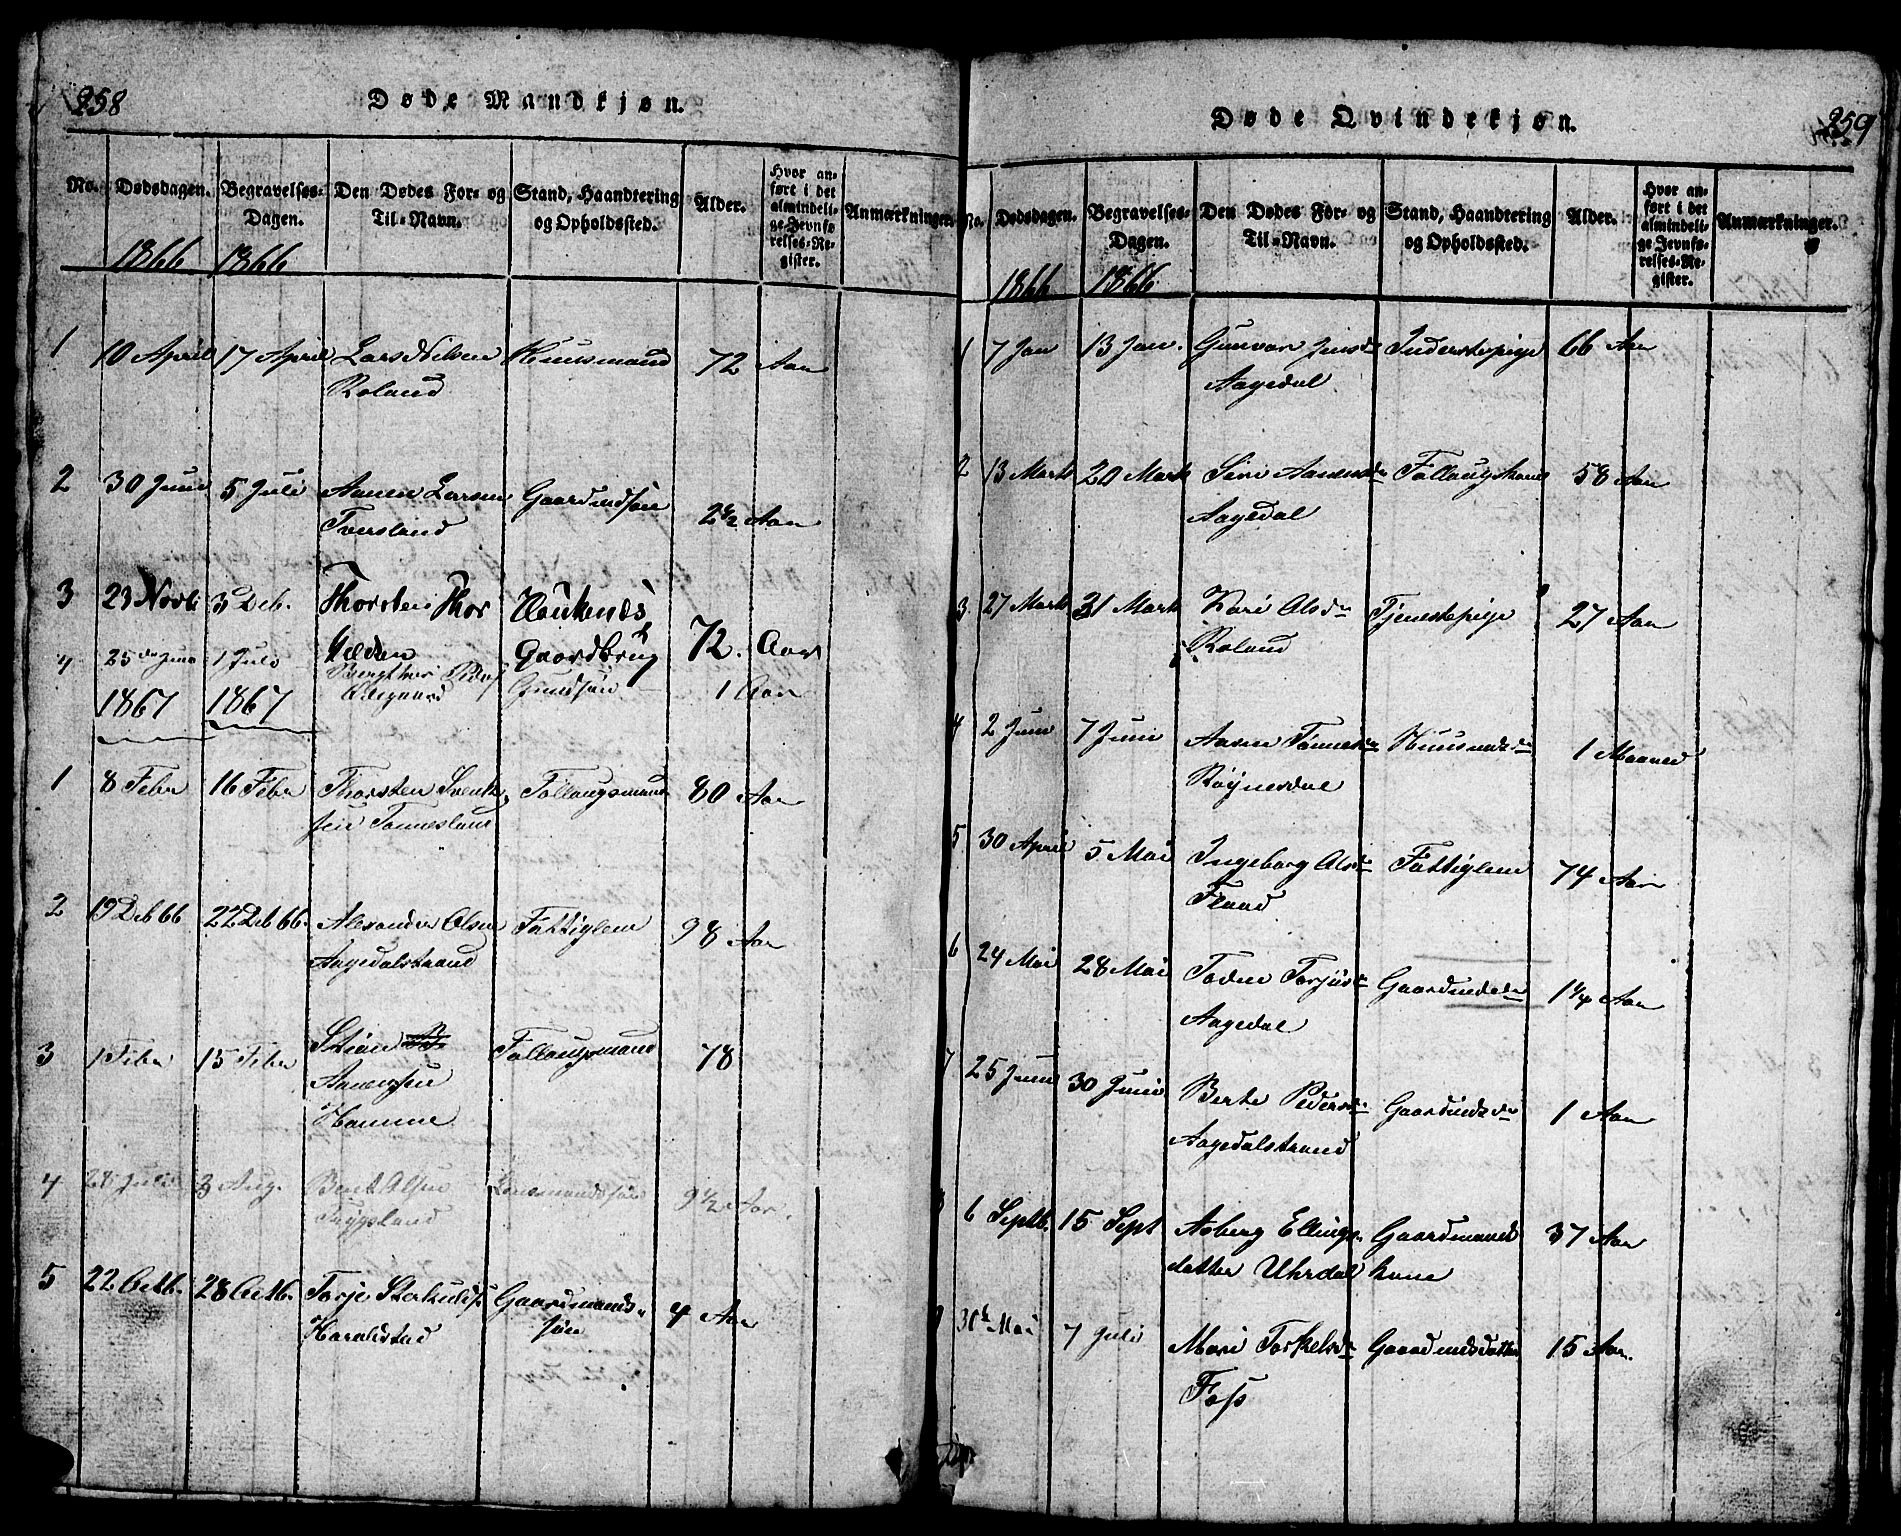 258
Døde Mandkjøn.
No. Dødsdagen. Begravelses-Dagen. Den Dødes For- og Til-Navn. Stand, Haandtering og Opholdssted. Alder. Hvor anført i det almindelige Jevnførelses-Register. Anmærkninger.
1866 1866
1 10 April 17 April Lars Nilsen Huusmand 72 Aar
Roland
2 30 Juni 5 Juli Aanen Larsen Gaardmdsøn 2 1/2 Aar
Tversland
3 23 Novb 3 Deb. Thorsten Thor
Gaardbrug 72. Aar
4 25 de Juni 1 Juli 1 Aar
1867 1867
1 8 Febr 16 Febr Thorsten Svent- Follaugsmand 80 Aar
sen Tonnesland
2 19 Deb 66 22 Deb 66. Alexander Olsen Fattiglem 98 Aar
Aagedalstrand
3 1 Febr 15 Febr Stiøn Follaugsmand 78
Aanensen
Homme
4 28 Juli 3 Aug. Berit Olsen søn 9 1/2 Aar.
Trygsland
5 22 Octb. 28 Octb. Torje Gaardmands- 4 Aar
Haraldstad søn
259
Døde Qvindekjøn.
No. Dødsdagen. Begravelses-Dagen. Den Dødes For- og Til-Navn. Stand, Haandtering og Opholdssted. Alder. Hvor anført i det almindelige Jevnførelses-Register. Anmærkninger.
1866 1866
1 7 Jan 13 Jan. Gunvor Jensdr Inderstepige 66 Aar
Aagedal
2 13 Marts 20 Marts Siri Aanensdr Follaugskone 58 Aar
Aagedal
3 27 Marts 31 Marts Kari Olsdr Tjenestepige 27 Aar
Roland
4 2 Juni 7 Juni Aasne Tønnesdr Huusmdsdr 1 Maaned
Røynesdal
5 30 April 5 Mai Ingeborg Olsdr Fattiglem 74 Aar
Flaad
6 24 Mai 28 Mai Todne Torjusdr Gaardmdsdr 1 1/4 Aar
Aagedal
7 25 Juni 30 Juni Berte Pedersdr Gaardmdsdr 1 Aar
Aagedalstrand
8 6 Septb. 15 Sept Asberg Ellings- Gaardmands 37 Aar
datter Uhrdal kone
9 30te Mai 7 Juli Mari Torkelsdr Gaardmdsdatter 15 Aar.
Foss